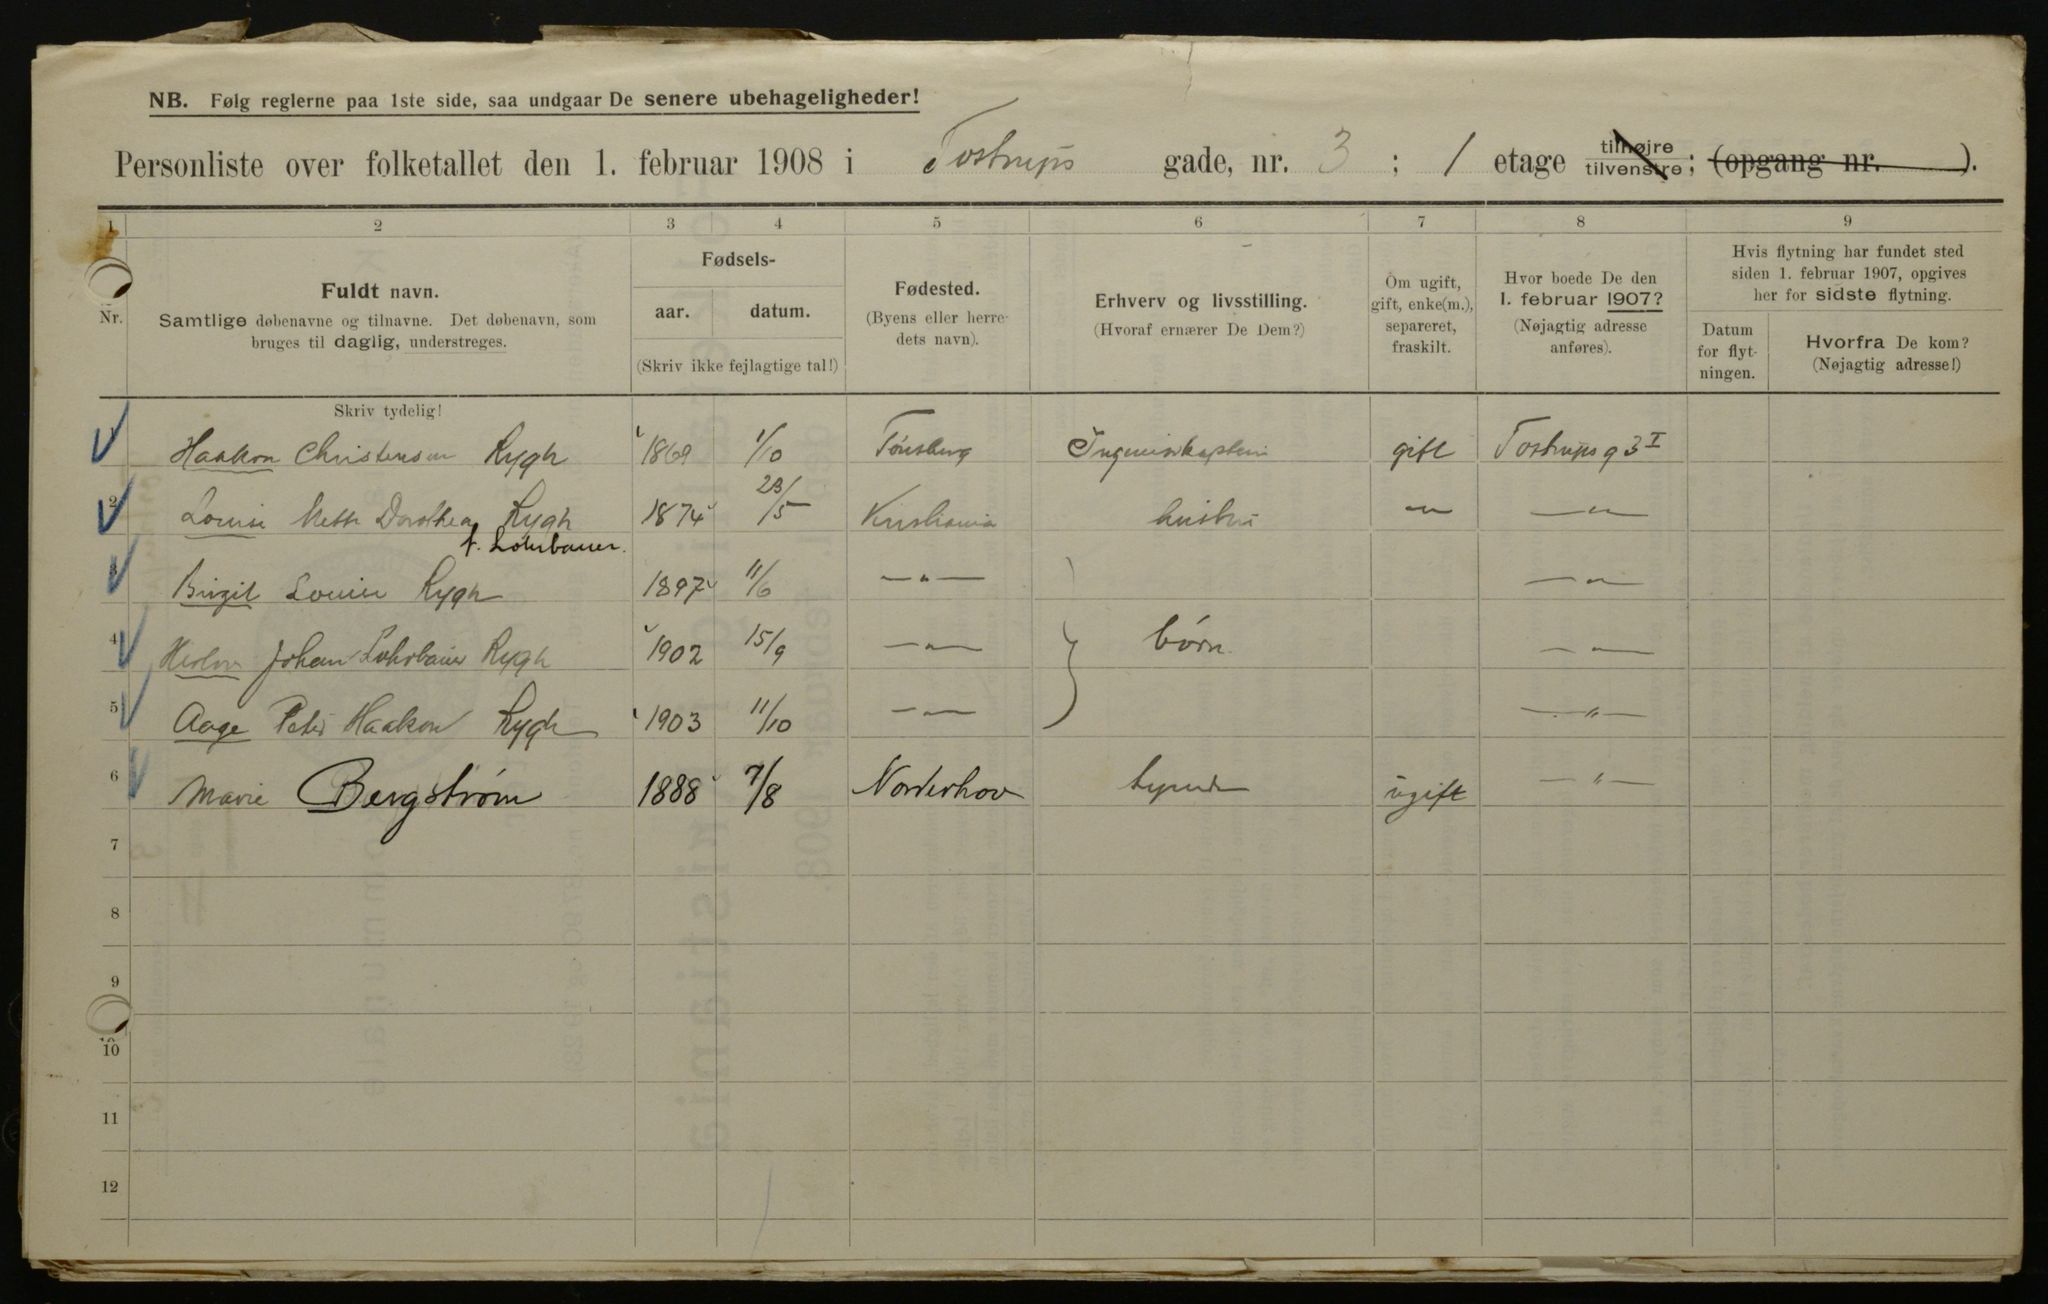 NB. Følg reglerne paa 1ste side, saa undgaar De senere ubehageligheder!
Personliste over folketallet den 1. februar 1908 i Tostrups gade, nr. 3 ; 1 etage tilhøjre tilvenstre ; (opgang nr. ).
1 2 3 4 5 6 7 8 9
Nr.
Fuldt navn.
Samtlige døbenavne og tilnavne. Det døbenavn, som
bruges til daglig, understreges.
Skriv tydelig!
Fødsels-
aar. datum.
(Skriv ikke fejlagtige tal!)
Fødested.
(Byens eller herre-
dets navn).
Erhverv og livsstilling.
(Hvoraf ernærer De Dem?)
Om ugift,
gift, enke(m.),
separeret,
fraskilt.
Hvor boede De den
1. februar 1907?
(Nøjagtig adresse
anføres).
Hvis flytning har fundet sted
siden 1. februar 1907, opgives
her for sidste flytning.
Datum
for flyt-
ningen.
Hvorfra De kom?
(Nøjagtig adresse!)
1 Haakon Christensen Rygh 1869 1/10 Tønsberg Ingeniørkaptein gift Tostrups g 3 I
2 Louise Mette Dorothea Rygh 1874 23/5 Kristiania hustru — " — — " —
f. Lohrbauer.
3 Birgit Louise Rygh 1897 11/6 — " — — " —
4 Johan Lohrbauer Rygh 1902 15/9 — " — børn — " —
5 Aage Peter Haakon Rygh 1903 11/10 — " — — " —
6 Marie Bergstrøm 1888 7/8 Norderhov ugift — " —
7
8
9
10
11
12